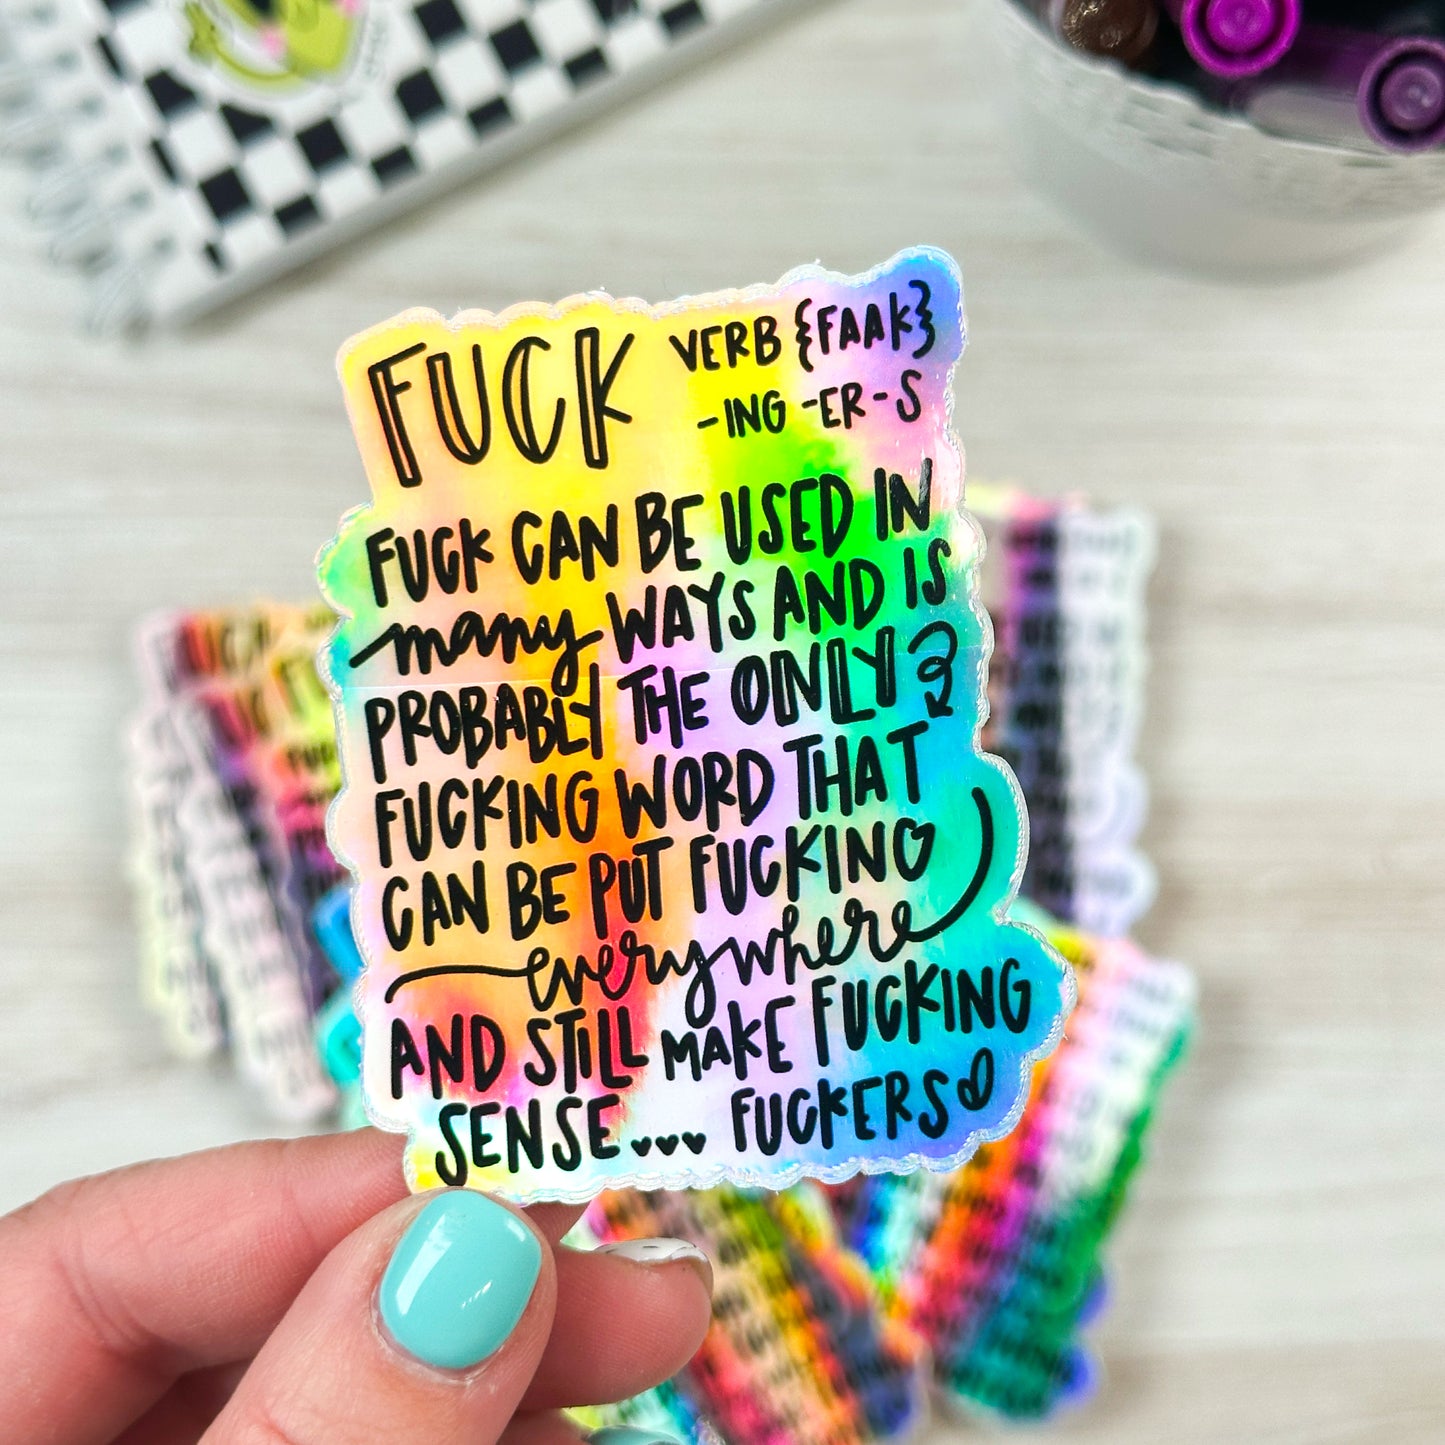 FUCK VERB {FAAK}
-ING -ER -S
FUCK CAN BE USED IN
many WAYS AND IS
PROBABLY THE ONLY
FUCKING WORD THAT
CAN BE PUT FUCKING
everywhere
AND STILL MAKE FUCKING
SENSE... FUCKERS